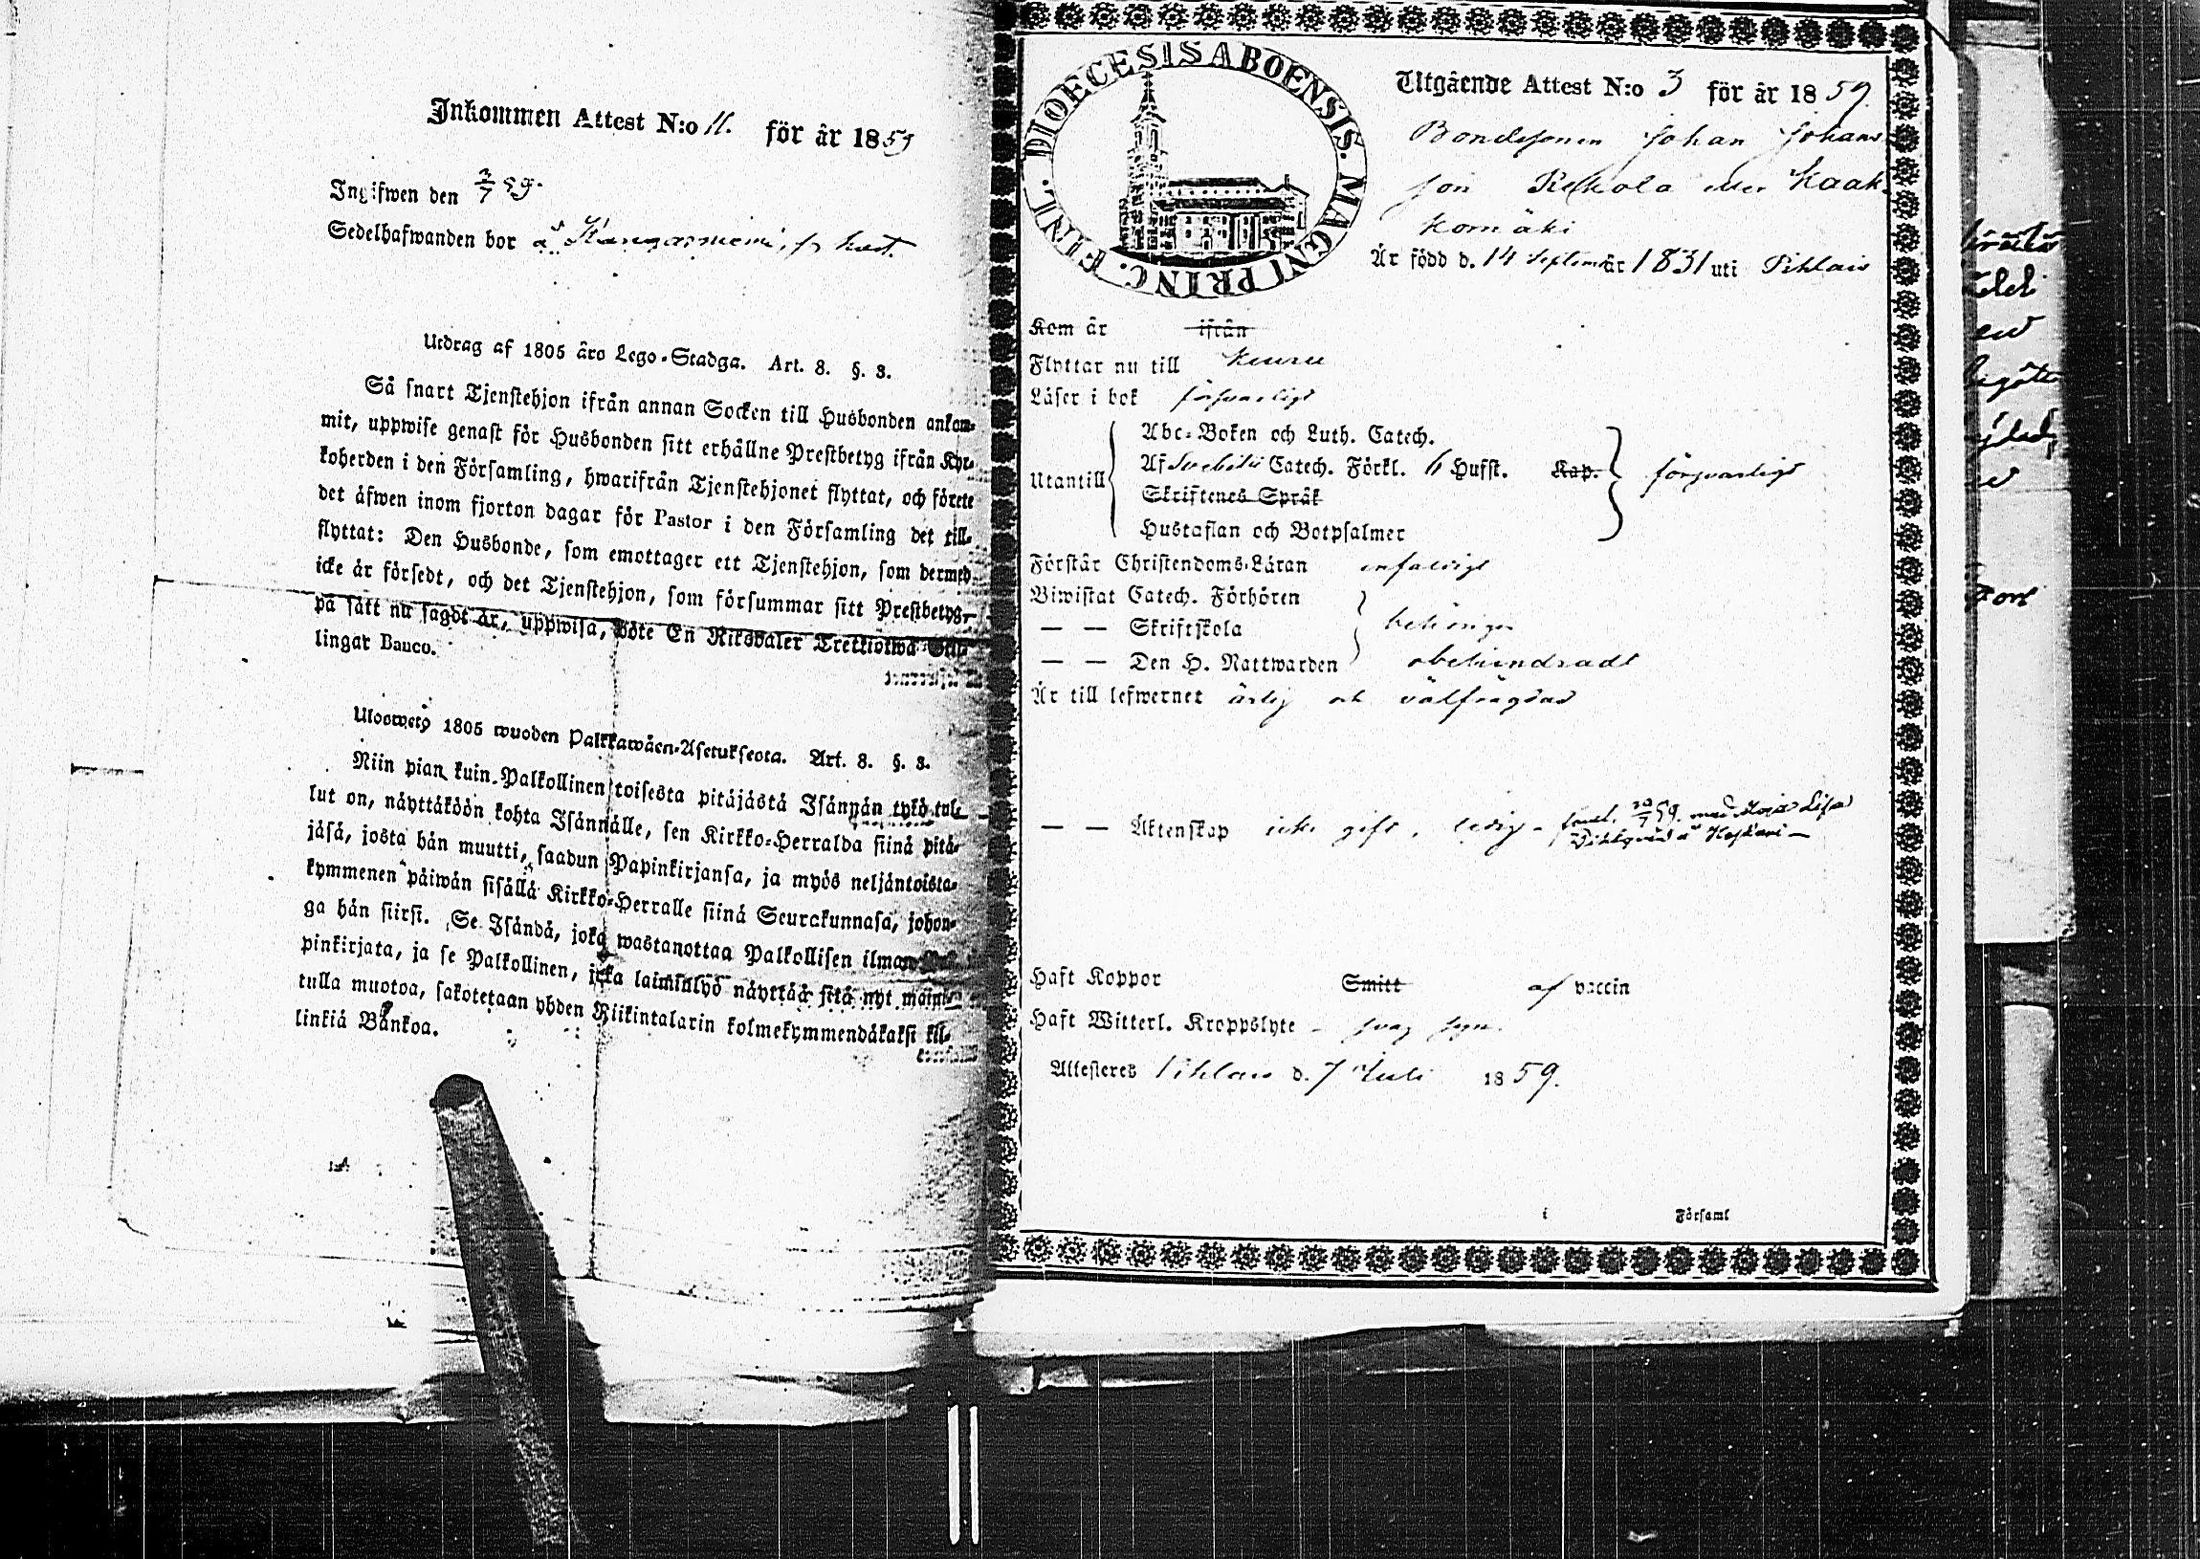 Inkommen Attest N:o 11. för år 1859
Ingifwen den 3/7 59.
Sedelhafwanden bor å
Utdrag af 1805 års Lego-Stadga. Art. 8. §. 3.
Så snart Tjenstehjon ifrån annan Socken till Husbonden ankom-
mit, uppwise genast för Husbonden sitt erhållne Prestbetyg ifrån Kyr-
koherden i den Församling, hwarifrån Tjenstehjonet flyttat, och förete
det äfwen inom fjorton dagar för Pastor i den Församling det till-
flyttat: Den Husbonde, som emottager ett Tjenstehjon, som dermed
icke är försedt, och det Tjenstehjon, som försummar sitt Prestbetyg,
på sätt nu sagdt är, uppwisa, böte En Riksdaler Trettiotwå Skil-
lingar Banco.
Ulosweto 1805 wuoden Palkkawäen-Asetuksesta. Art. 8. §. 3.
Niin pian kuin Palkollinen toisesta pitäjästä Isännän tykö tul-
lut on, näyttäköön kohta Isännälle, sen Kirkko-Herralda siinä pitä-
jäsä, josta hän muutti, saadun Papinkirjansa, ja myös neljäntoista-
kymmenen päiwän sisällä Kirkko-Herralle siinä Seurakunnasa, johon-
ga hän siirsi. Se Isändä, joka wastanottaa Palkollisen ilman
pinkirjata, ja se Palkollinen, joka laiminlyö näyttää sitä nyt mainit-
tulla muotoa, sakotetaan yhden Riikintalarin kolmekymmendäkaksi kil-
linkiä Bankoa.
DIOECESIS ABOENSIS. MAGNI PRINC. FINL.
Utgående Attest N:o 3 för år 1859.
Bondesonen Johan Johans
son Rekola eller Kaak-
komäki
Är född d. 14 September 1831 uti Pihlais
Kom år ifrån
Flyttar nu till Keuru
Läser i bok försvarligt
Abc-Boken och Luth. Catech.
Utantill Af Svebilii Catech. Förkl. 6 Hufst. Kap. försvarligt
Skriftenes Språk
Hustaflan och Botpsalmer
Förstår Christendoms-Läran enfaldigt
Biwistat Catech. Förhören
— — Skriftskola behörigen
— — Den H. Nattwarden obehindradt
Är till lefwernet ärlig och välfrägdad
— — Äktenskap icke gift, ledig
Haft Koppor Smitt af vaccin
Haft Witterl. Kroppslyte – svag syn.
Attesteres Pihlais d. 7 Juli 1859.
i Församl